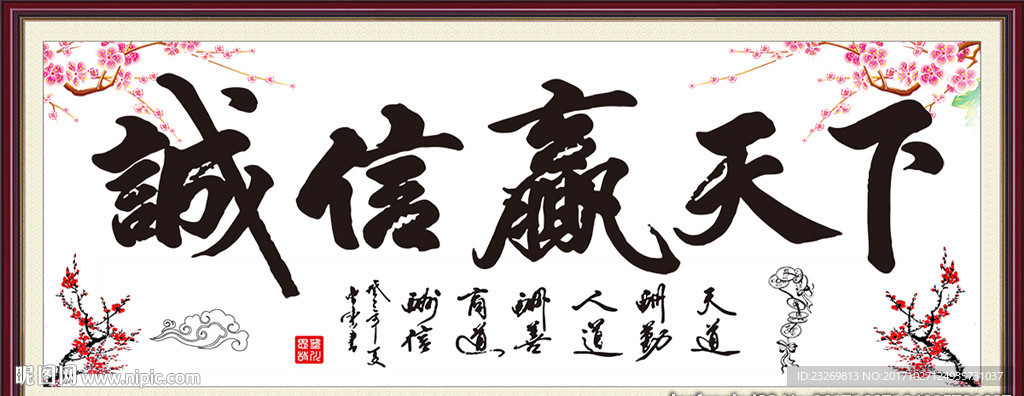 誠信赢天下
天道
酬勤
人道
酬善
商道
酬信
昵图网 www.nipic.com
ID:23269813 NO:20171027124935731037